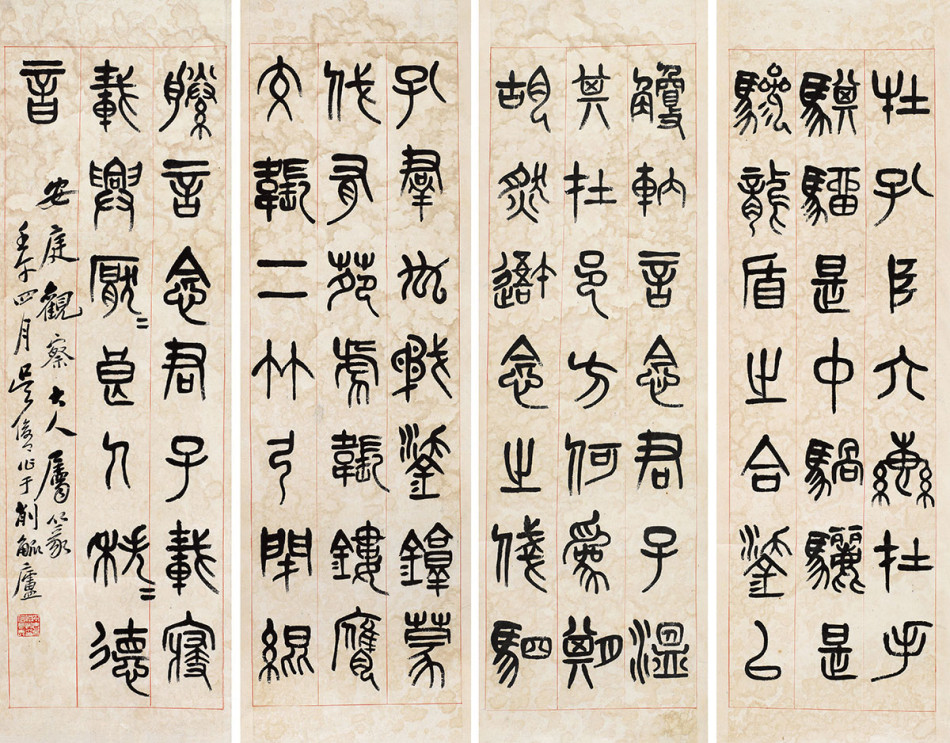 牡孔阜六轡在手
騏駵是中騧驪是
驂龍盾之合鋈㠯
觼軜言念君子溫
其在邑方何為期
胡然我念之俴駟
孔群厹矛鋈錞蒙
伐有苑虎韔鏤膺
交韔二竹弓閉緄
縢言念君子載寢
載興厭=良人秩=德
音
安庭觀察大人屬篆
壬午四月吳俊作于削觚廬